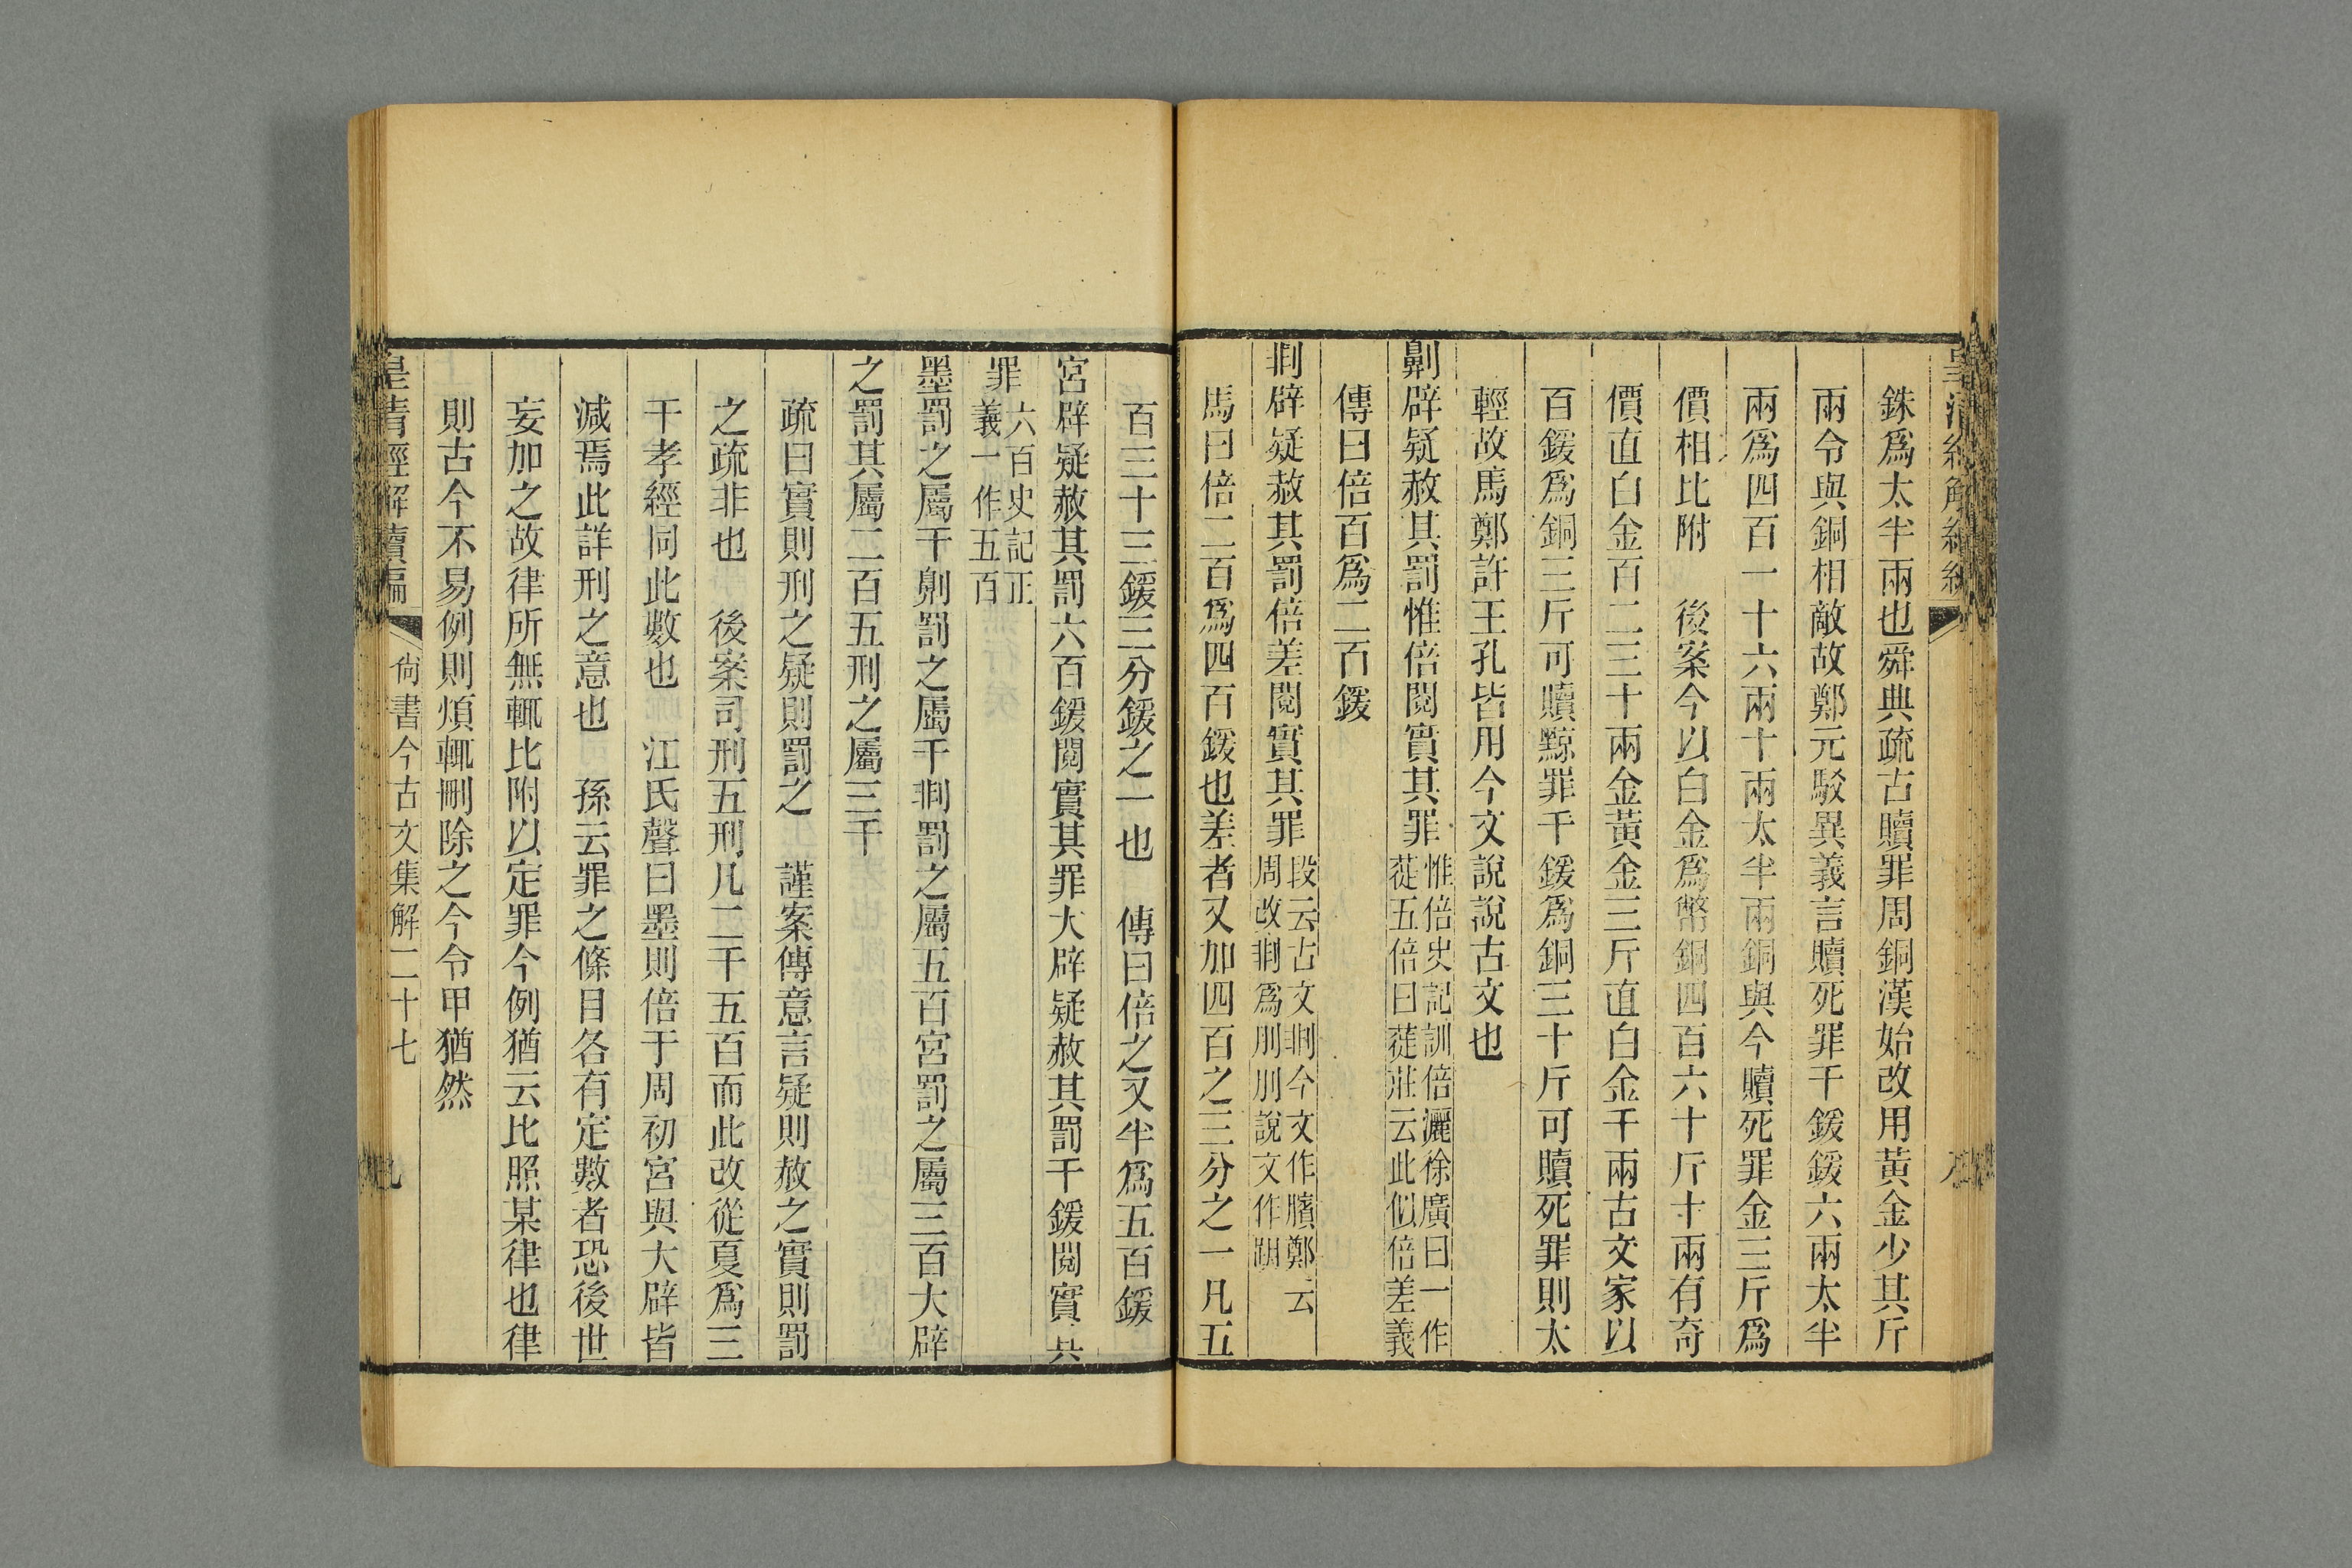 銖爲太半兩也舜典疏古贖罪周銅漢始改用黃金少其斤
兩令與銅相敵故鄭元駁異義言贖死罪千鍰鍰六兩太半
兩爲四百一十六兩十兩太半兩銅與今贖死罪金三斤爲
價相比附　後案今以白金爲幣銅四百六十斤十兩有奇
價直白金百二三十兩金黃金三斤直白金千兩古文家以
百鍰爲銅三斤可贖黥罪千鍰爲銅三十斤可贖死罪則太
輕故馬鄭許王孔皆用今文說說古文也
劓辟疑赦其罰惟倍閱實其罪
惟倍史記訓倍灑徐廣曰一作
蓰五倍曰蓰莊云此似倍差義
傳曰倍百爲二百鍰
剕辟疑赦其罰倍差閱實其罪
段云古文剕今文作臏鄭云
周改剕爲刖刖說文作跀
馬曰倍二百爲四百鍰也差者又加四百之三分之一凡五
百三十三鍰三分鍰之一也　傳曰倍之又半爲五百鍰
宮辟疑赦其罰六百鍰閱實其罪大辟疑赦其罰千鍰閱實其
罪
六百史記正
義一作五百
墨罰之屬千劓罰之屬千剕罰之屬五百宮罰之屬三百大辟
之罰其屬二百五刑之屬三千
疏曰實則刑之疑則罰之　謹案傳意言疑則赦之實則罰
之疏非也　後案司刑五刑凡二千五百而此改從夏爲三
千孝經同此數也　江氏聲曰墨則倍于周初宮與大辟皆
減焉此詳刑之意也　孫云罪之條目各有定數者恐後世
妄加之故律所無輒比附以定罪今例猶云比照某律也律
則古今不易例則煩輒刪除之今令甲猶然
皇清經解續編　尙書今古文集解二十七　九